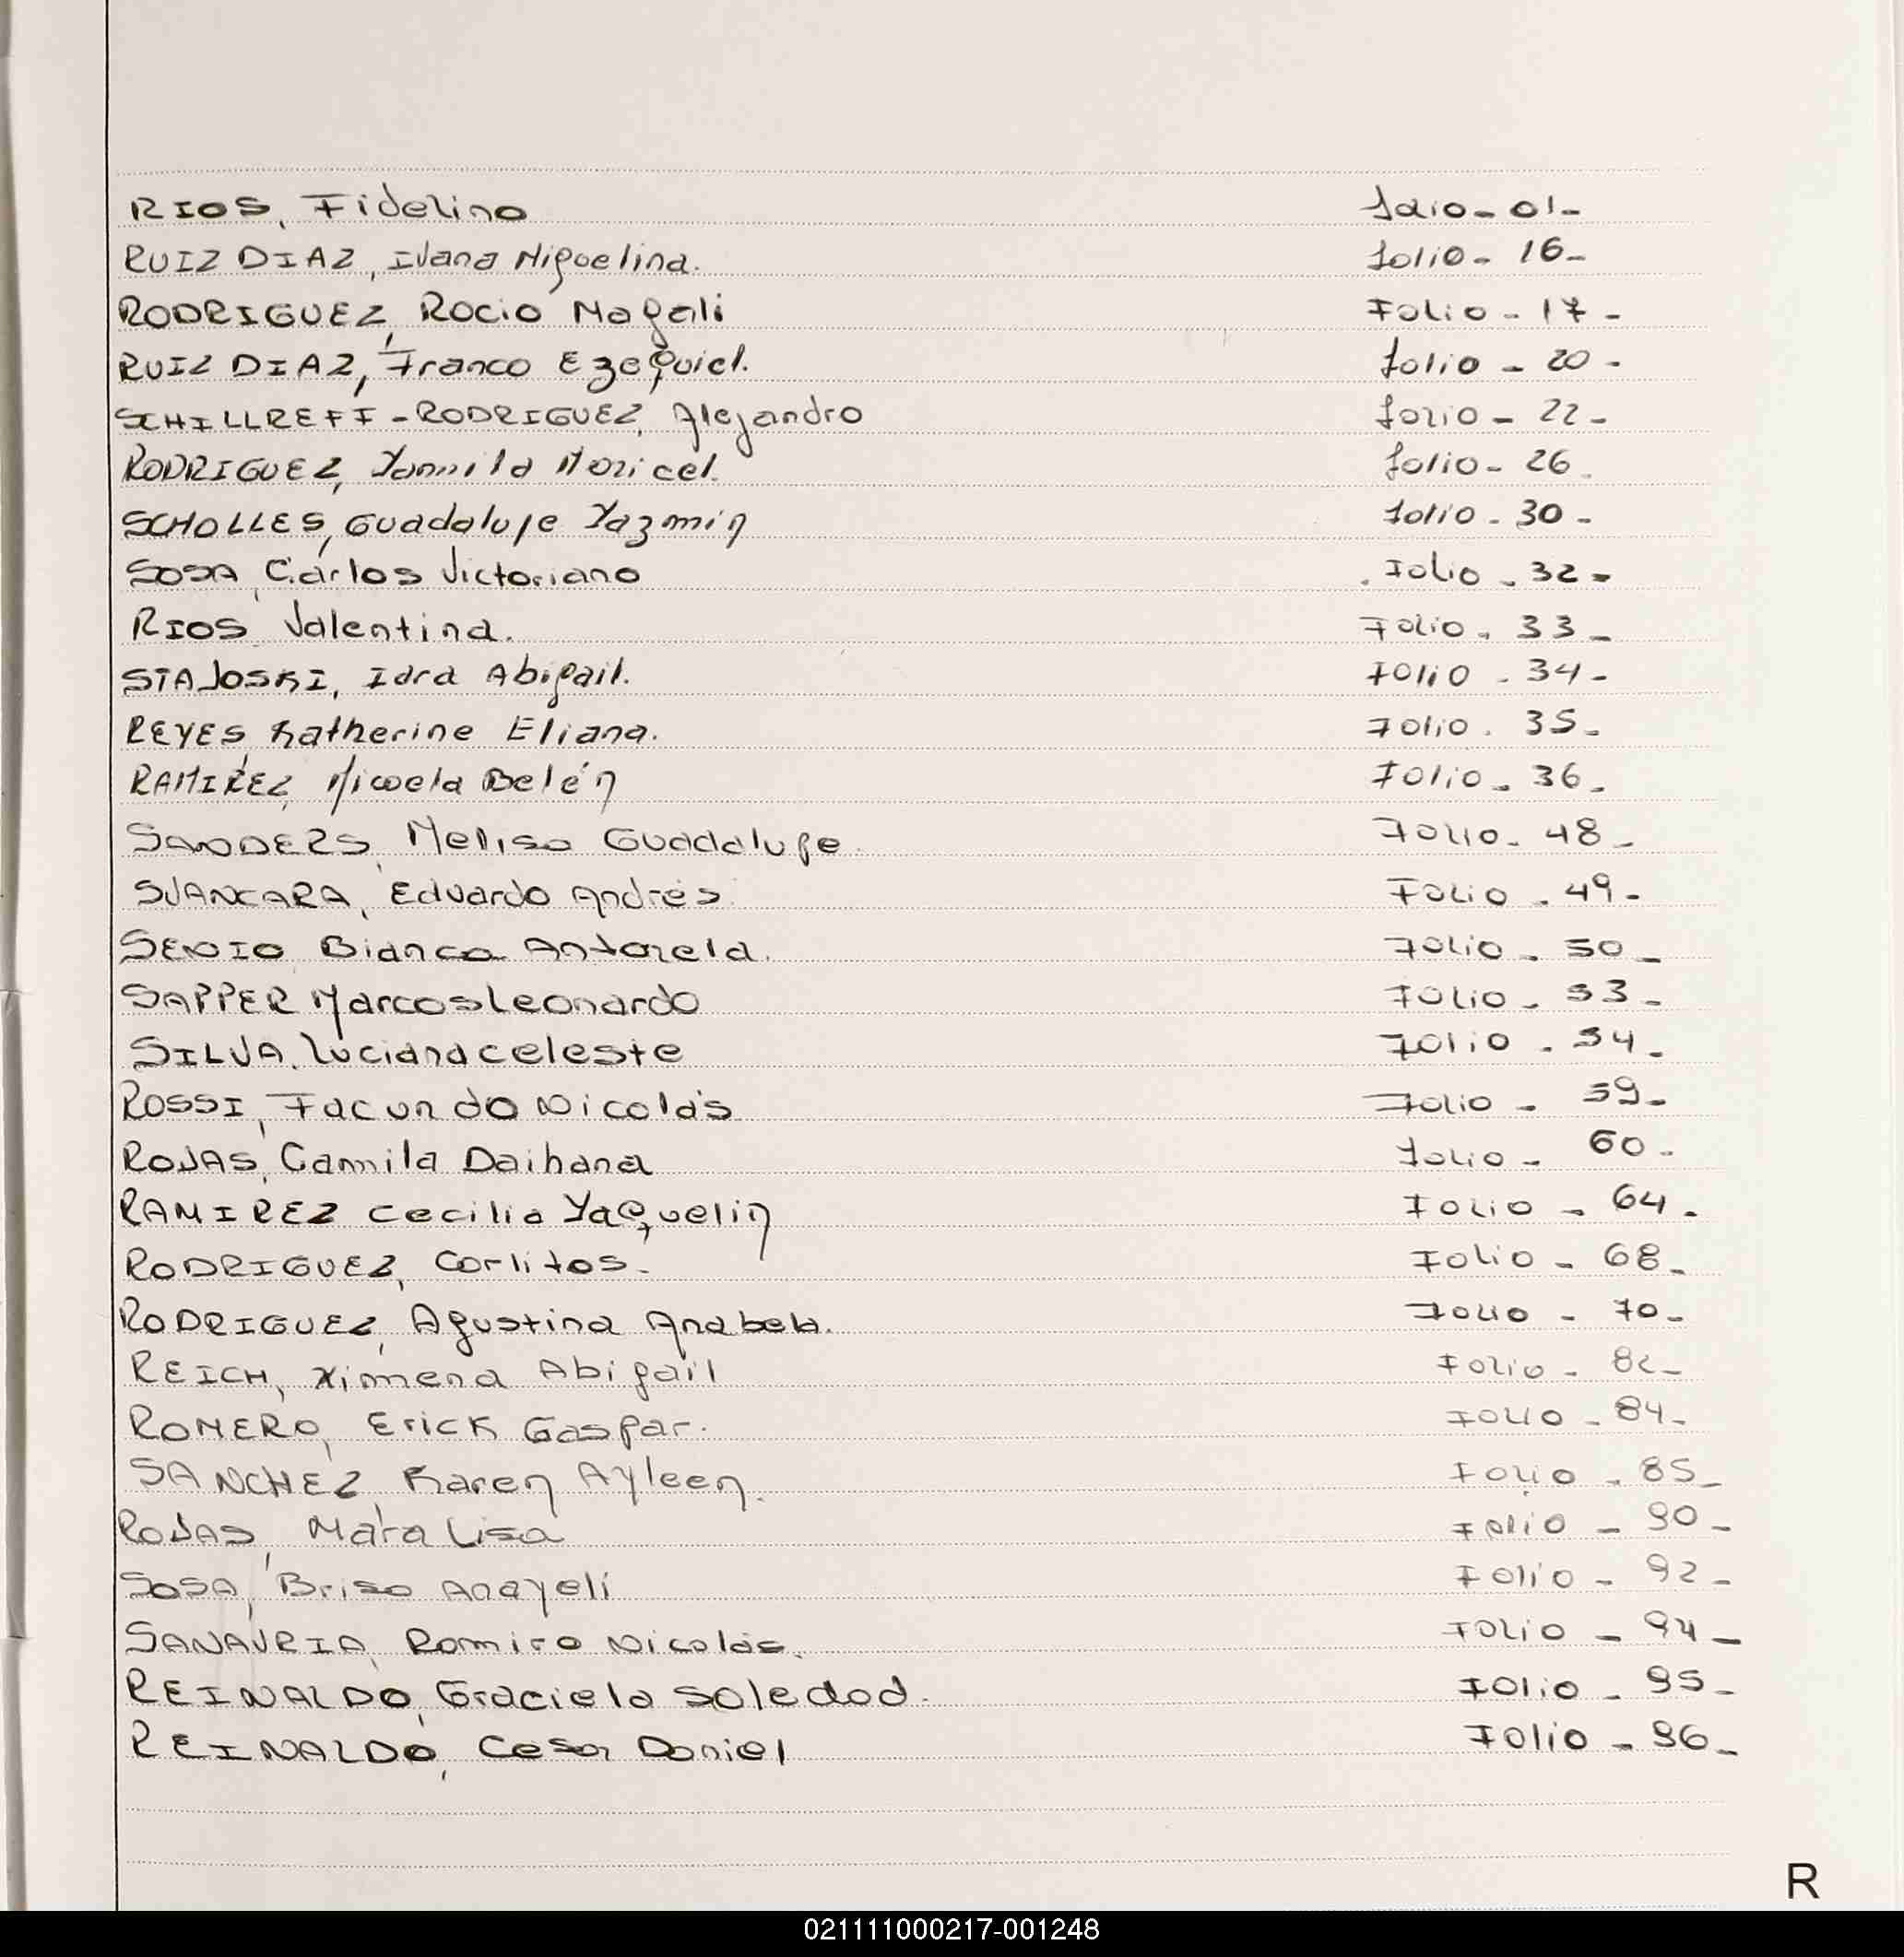 RIOS, Fidelino folio - 01 -
RUIZ DIAZ, Ivana Miguelina. folio - 16 -
RODRIGUEZ, Rocio Magali Folio - 17 -
RUIZ DIAZ, Franco Ezequiel. folio - 20 -
SCHILLREFF - RODRIGUEZ, Alejandro folio - 22 -
RODRIGUEZ, Yamila Maricel. folio - 26.
SCHOLLES, Guadalupe Yazmin folio - 30 -
SOSA, Carlos Victoriano Folio - 32 -
RIOS Valentina. Folio - 33 -
STAJOSKI, Iara Abigail. Folio - 34 -
REYES, Katherine Eliana. Folio - 35 -
RAMIREZ, Micaela Belén Folio - 36 -
SANDERS, Melisa Guadalupe. Folio - 48 -
SJANCARA, Eduardo Andrés. Folio - 49 -
Bianca Antonela. Folio - 50 -
SAPPER Marcos Leonardo Folio - 53 -
SILVA, Luciana Celeste Folio - 54 -
ROSSI, Facundo Nicolás Folio - 59 -
ROJAS, Camila Daihana Folio - 60 -
RAMIREZ Cecilia Yaquelin Folio - 64 -
RODRIGUEZ, Carlitos. Folio - 68 -
RODRIGUEZ, Agustina Anabela. Folio - 70 -
REICH, Ximena Abigail Folio - 82 -
ROMERO, Erick Gaspar. Folio - 84 -
SANCHEZ, Karen Ayleen. Folio - 85 -
ROJAS, Mara Lisa Folio - 90 -
SOSA, Brisa Anayeli Folio - 92 -
SANAVRIA, Ramiro Nicolás. Folio - 94 -
REINALDO, Graciela Soledad. Folio - 95 -
REINALDO, Cesar Daniel Folio - 96 -
R
021111000217-001248